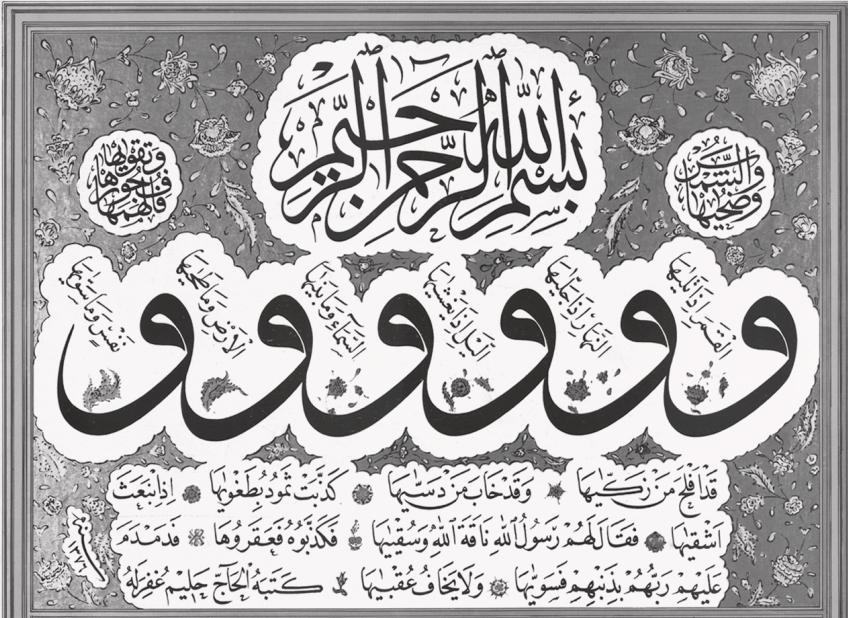 بسم الله الرحمن الرحيم
والشمس وضحيها
و القمر اذا تليها
و النهار اذا جليها
و اليل اذا يغشيها
و السماء وما بنيها
و الارض وما طحيها
و نفس وما سويها
فالهمها فجورها وتقويها
قد افلح من زكيها وقد خاب من دسيها كذبت ثمود بطغويها اذ انبعث
اشقيها فقال لهم رسول الله ناقة الله وسقيها فكذبوه فعقروها فدمدم
عليهم ربهم بذنبهم فسويها ولا يخاف عقبيها كتبه الحاج حليم غفر له